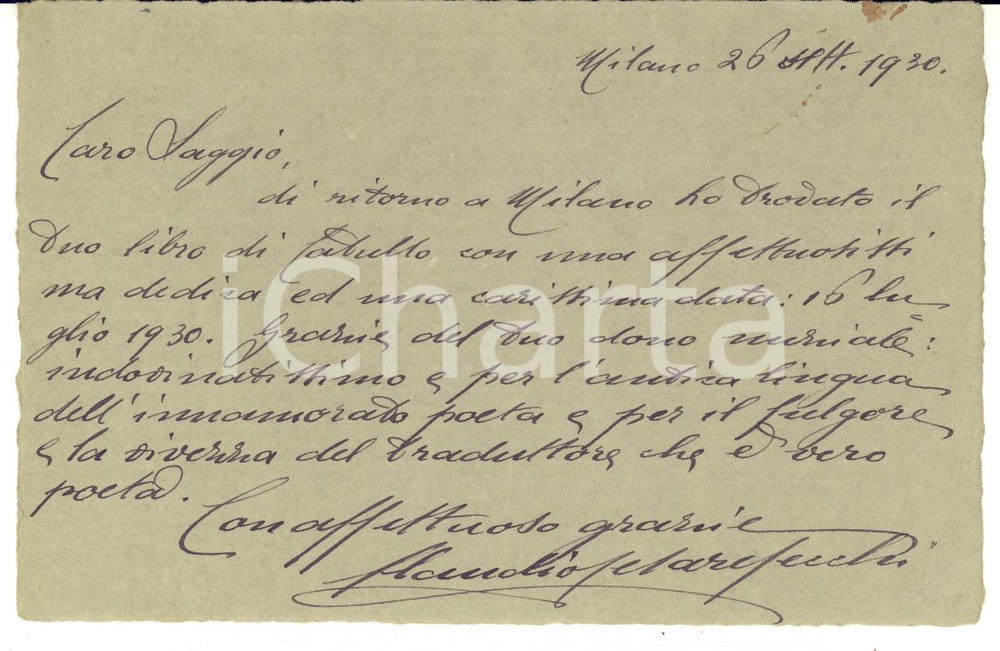 Milano 26 Sett. 1930.
Caro Saggio,
di ritorno a Milano ho trovato il
tuo libro di Catullo con una affettuosissi
ma dedica ed una carissima data: 16 lu
glio 1930. Grazie del tuo dono nuziale:
indovinatissimo e per l'antica lingua
dell'innamorato poeta e per il fulgore
e la vivezza del traduttore che è vero
poeta.
Con affettuoso grazie
Claudio
iCharta